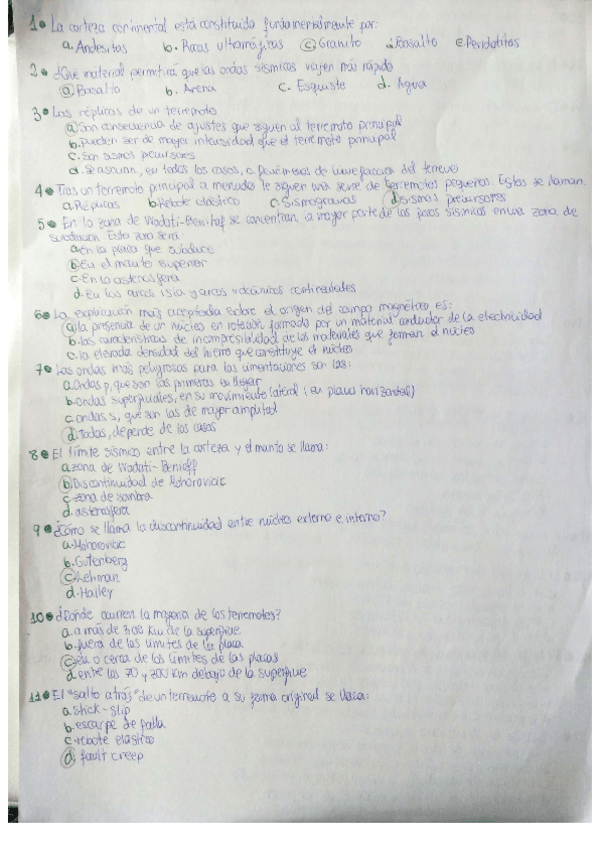 1. La corteza continental está constituida fundamentalmente por:
a. Andesitas b. Rocas ultramáficas c. Granito d. Basalto e. Peridotitas
2. ¿Que material permitirá que las ondas sísmicas viajen más rápido
a. Basalto b. Arena c. Esquisto d. Agua
3. Las réplicas de un terremoto
a. Son consecuencia de ajustes que siguen al terremoto principal
b. Pueden ser de mayor intensidad que el terremoto principal
c. Son sismos precursores
d. Se asocian, en todos los casos, a fenómenos de licuefacción del terreno
4. Tras un terremoto principal a menudo le siguen una serie de terremotos pequeños. Estos se llaman.
a. Réplicas b. Rebote elástico c. Sismogramas d. sismos precursores
5. En la zona de Wadati-Benihof se concentran la mayor parte de los focos sísmicos en una zona de
subducción. Esta zona será
a. En la placa que subduce
b. En el manto superior
c. En la astenosfera
d. En los arcos isla y arcos volcánicos continentales
6. La explicación más aceptada sobre el origen del campo magnético es:
a. la presencia de un núcleo en rotación formado por un material conductor de la electricidad
b. las características de incompresibilidad de los materiales que forman el núcleo
c. la elevada densidad del hierro que constituye el núcleo
7. Las ondas más peligrosas para las cimentaciones son las:
a. Ondas p, que son las primeras en llegar
b. ondas superficiales, en su movimiento lateral (en plano horizontal)
c. ondas s, que son las de mayor amplitud
d. Todas, depende de los casos
8. El límite sísmico entre la corteza y el manto se llama:
a. zona de Wadati-Benioff
b. Discontinuidad de Mohorovicic
c. zona de sombra
d. astenosfera
9. ¿Cómo se llama la discontinuidad entre núcleo externo e interno?
a. Mohorovicic
b. Gutenberg
c. Lehman
d. Hailey
10. ¿Dónde ocurren la mayoría de los terremotos?
a. a más de 300 km de la superficie
b. fuera de los límites de la placa
c. en o cerca de los límites de las placas
d. entre los 70 y 200 km debajo de la superficie
11. El "salto atrás" de un terremoto a su forma original se llama:
a. stick-slip
b. escarpe de falla
c. rebote elástico
d. fault creep